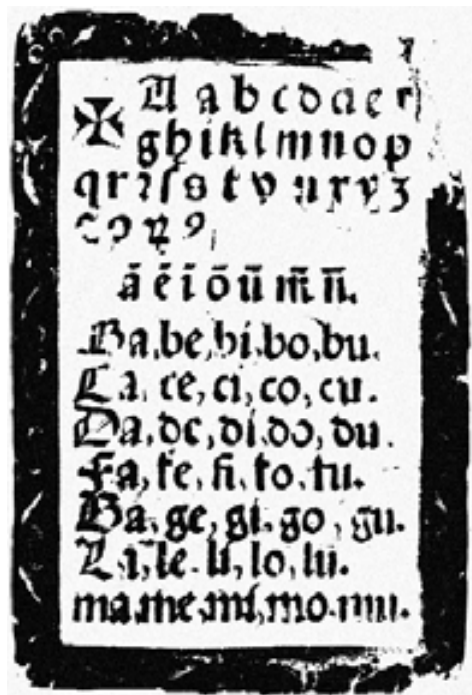 ✠ A a b c d d e f
g h i k l m n o p
q r ꝛ ſ s t v u x y z
ꝯ
ā ē ī ō ū m̄ n̄.
Ba, be, bi, bo, bu.
Ca, ce, ci, co, cu.
Da, de, di, do, du.
Fa, fe, fi, fo, fu.
Ga, ge, gi, go, gu.
La, le, li, lo, lu.
ma, me, mi, mo, mu.